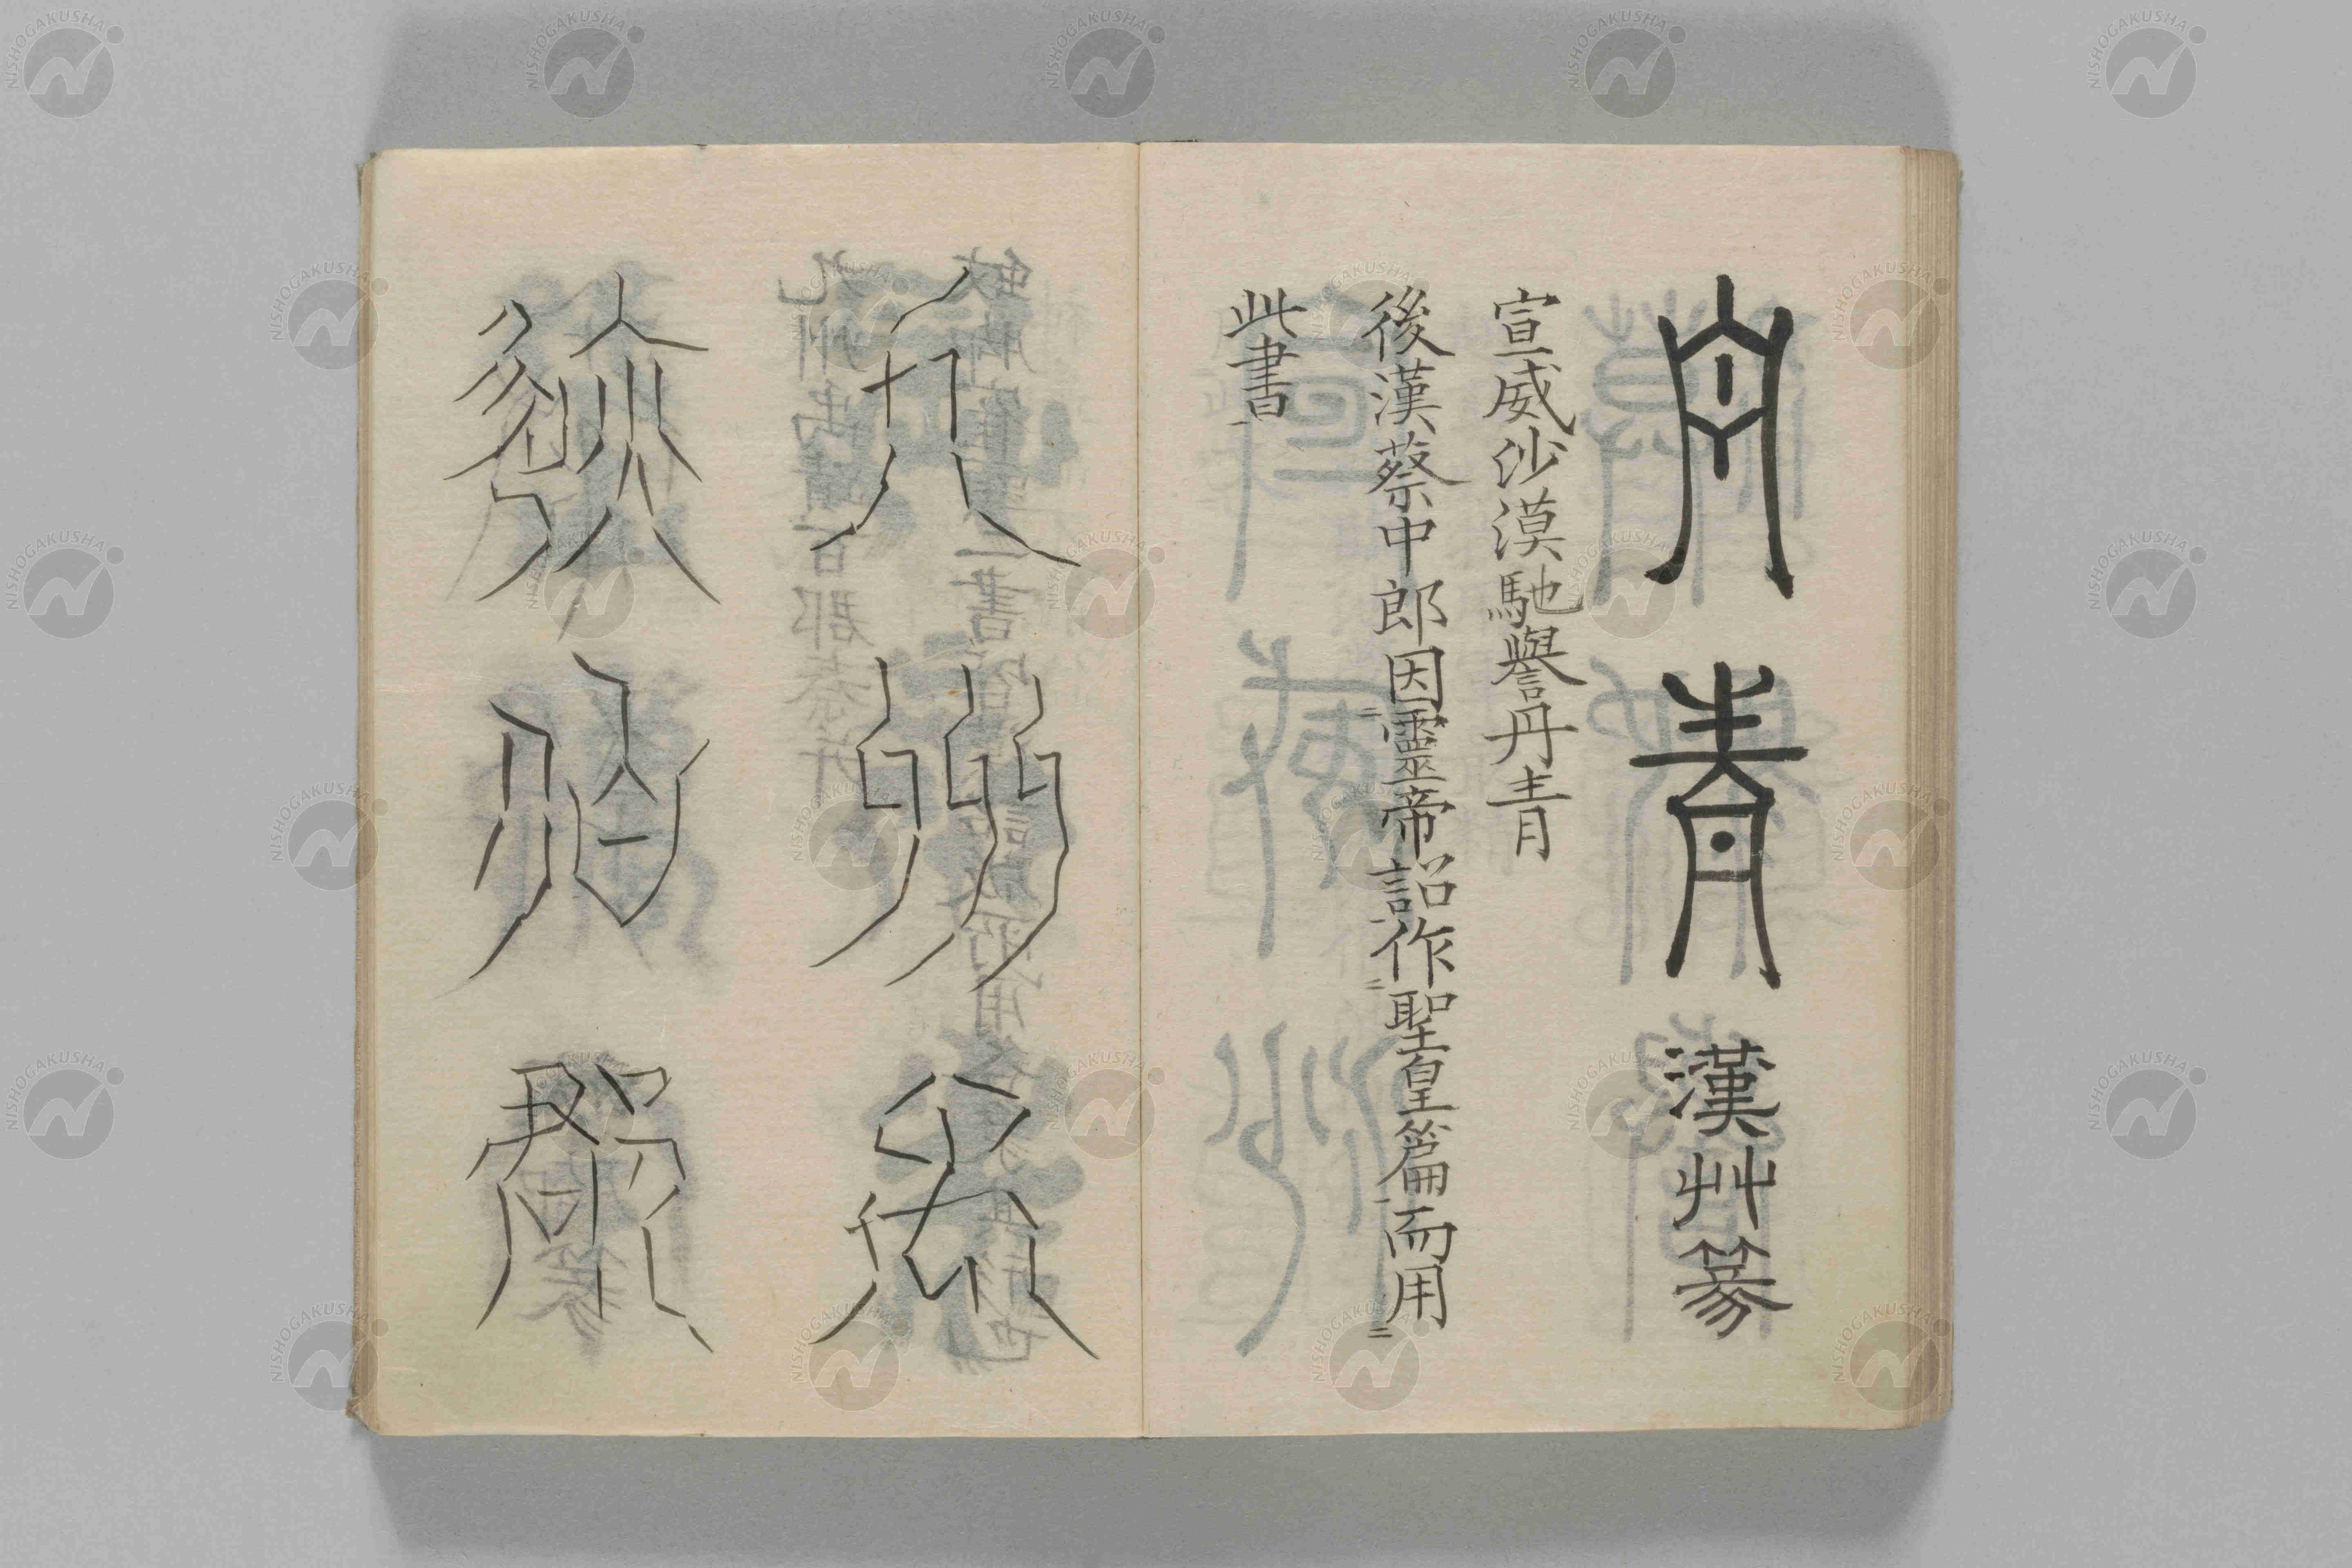 丹青漢艸篆
宣威沙漠馳譽丹青
後漢蔡中郎因靈帝詔作聖皇篇而用
此書
九州禹
百郡
NISHOGAKUSHA